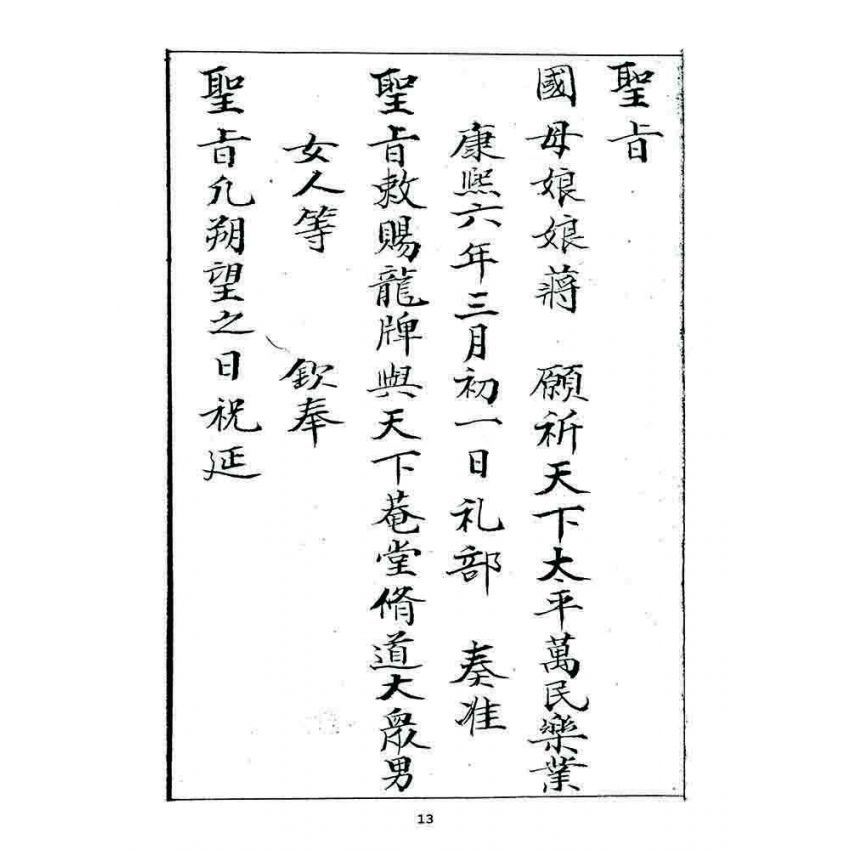 聖旨
國母娘娘蔣　願祈天下太平萬民樂業
康熙六年三月初一日礼部　奏准
聖旨敕賜龍牌與天下菴堂脩道大眾男
女人等　欽奉
聖旨凡朔望之日祝延
13